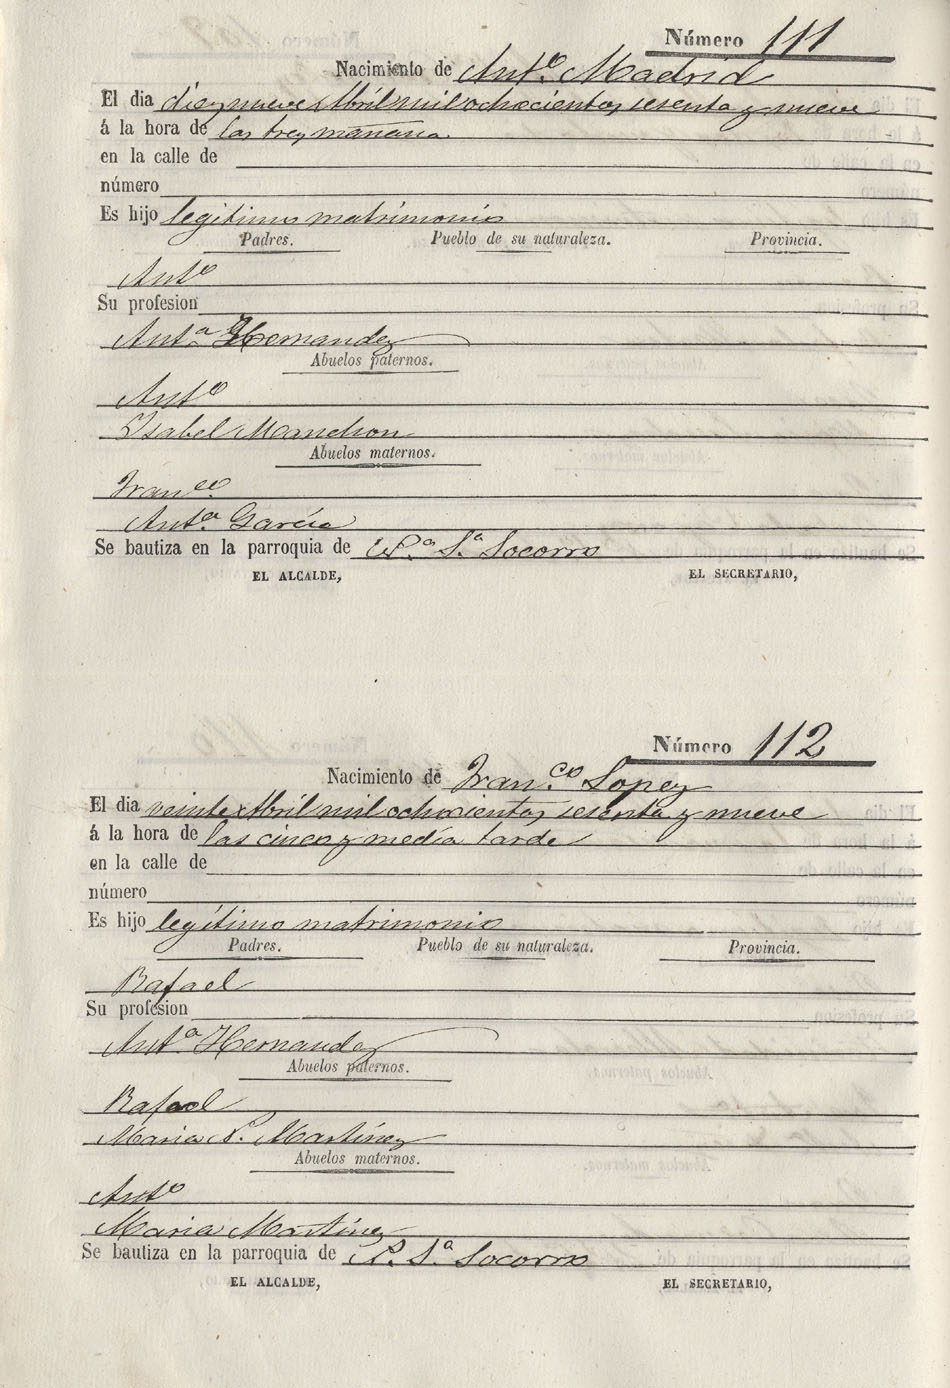 Número 111
Nacimiento de Antº Madrid
El dia diez y nueve Abril mil ochocientos sesenta y nueve
á la hora de las tres mañana
en la calle de
número
Es hijo legitimo matrimonio
Padres. Pueblo de su naturaleza. Provincia.
Antº
Su profesion
Antª Hernandez
Abuelos paternos.
Antº
Isabel Manchon
Abuelos maternos.
Franco
Antª García
Se bautiza en la parroquia de Nª Sª Socorro
EL ALCALDE, EL SECRETARIO,
Número 112
Nacimiento de Franco Lopez
El dia veinte Abril mil ochocientos sesenta y nueve
á la hora de las cinco y media tarde
en la calle de
número
Es hijo legítimo matrimonio
Padres. Pueblo de su naturaleza. Provincia.
Rafael
Su profesion
Antª Hernandez
Abuelos paternos.
Rafael
Maria Martínez
Abuelos maternos.
Antº
Maria Martínez
Se bautiza en la parroquia de Sª Socorro
EL ALCALDE, EL SECRETARIO,